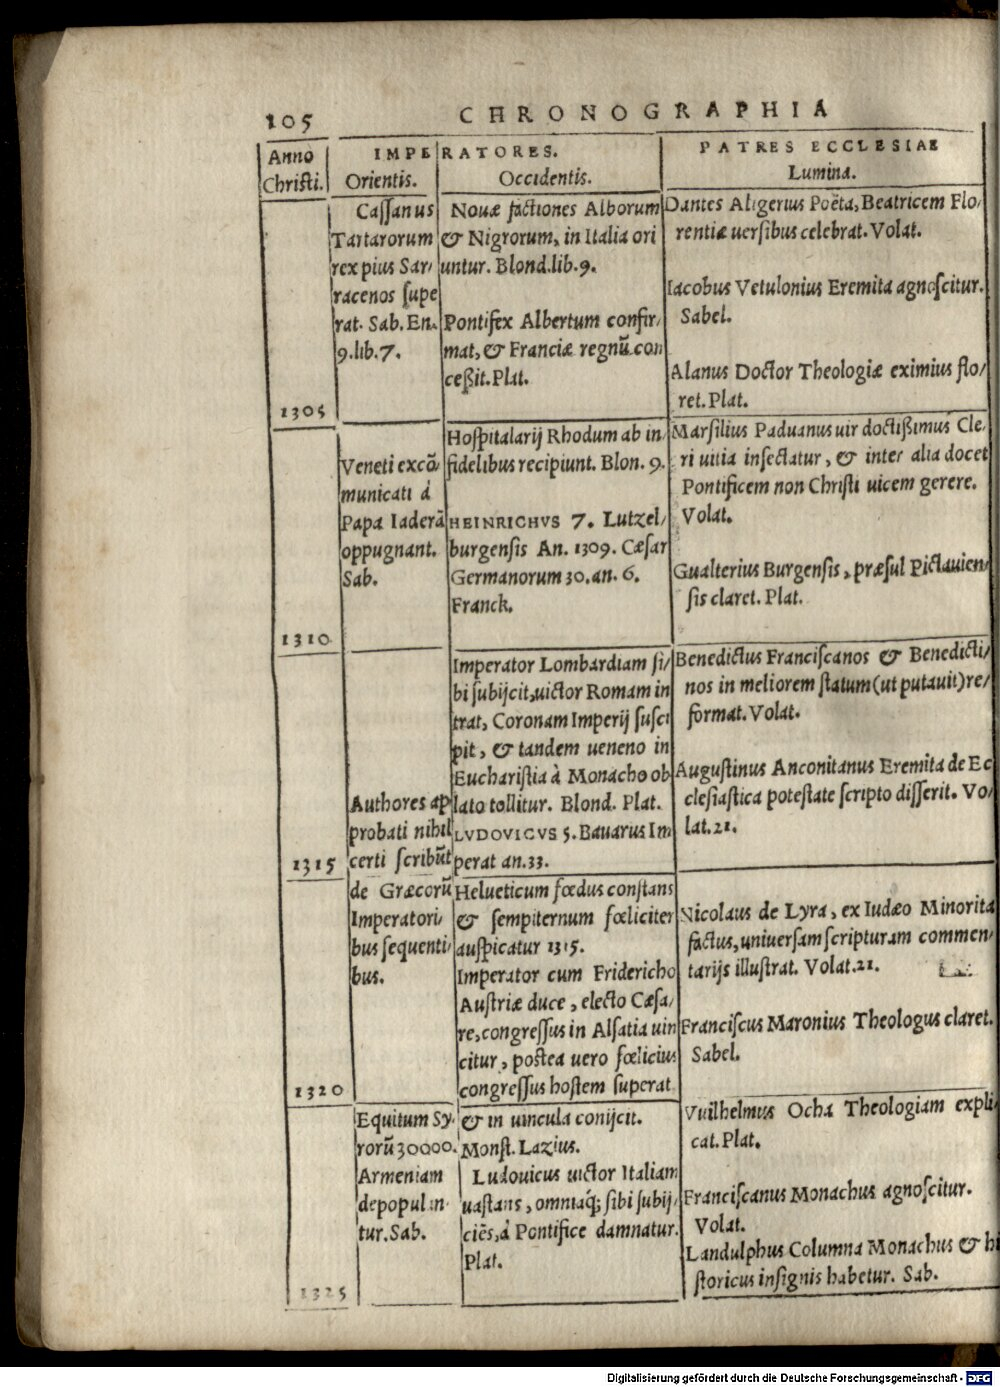 105
CHRONOGRAPHIA
Anno
Christi.
IMPERATORES.
Orientis.
Occidentis.
PATRES ECCLESIAE
Lumina.
1305
Cassanus
Tartarorum
rex pius Sar-
racenos supe
rat. Sab. En.
9.lib.7.
Nouæ factiones Alborum
& Nigrorum, in Italia ori
untur. Blond.lib.9.
Pontifex Albertum confir-
mat, & Franciæ regnū con
ceßit. Plat.
Dantes Aligerius Poëta, Beatricem Flo-
rentiæ uersibus celebrat. Volat.
Iacobus Vetulonius Eremita agnoscitur.
Sabel.
Alanus Doctor Theologiæ eximius flo-
ret. Plat.
1310
Veneti excō-
municati à
Papa Iaderā
oppugnant.
Sab.
Hospitalarij Rhodum ab in-
fidelibus recipiunt. Blon. 9.
HEINRICHVS 7. Lutzel-
burgensis An. 1309. Cæsar
Germanorum 30. an. 6.
Franck.
Marsilius Paduanus uir doctißimus Cle-
ri uitia insectatur, & inter alia docet
Pontificem non Christi uicem gerere.
Volat.
Gualterius Burgensis, præsul Pictauien-
sis claret. Plat.
1315
Authores ap
probati nihil
certi scribūt
Imperator Lombardiam si-
bi subijcit, uictor Romam in
trat, Coronam Imperij susci
pit, & tandem ueneno in
Eucharistia à Monacho ob
lato tollitur. Blond. Plat.
LVDOVICVS 5. Bauarus Im
perat an. 33.
Benedictus Franciscanos & Benedicti-
nos in meliorem statum (ut putauit) re-
format. Volat.
Augustinus Anconitanus Eremita de Ec
clesiastica potestate scripto disserit. Vo-
lat. 21.
1320
de Græcorū
Imperatori-
bus sequenti-
bus.
Helueticum fœdus constans
& sempiternum fœliciter
auspicatur 1315.
Imperator cum Fridericho
Austriæ duce, electo Cæsa-
re, congressus in Alsatia uin
citur, postea uero fœlicius
congressus hostem superat
Nicolaus de Lyra, ex Iudæo Minorita
factus, uniuersam scripturam commen-
tarijs illustrat. Volat. 21.
Franciscus Maronius Theologus claret.
Sabel.
1325
Equitum Sy-
rorū 30000.
Armeniam
depopulan-
tur. Sab.
& in uincula conijcit.
Monst. Lazius.
Ludouicus uictor Italiam
uastans, omniaq; sibi subij-
ciēs, à Pontifice damnatur.
Plat.
Vuilhelmus Ocha Theologiam expli
cat. Plat.
Franciscanus Monachus agnoscitur.
Volat.
Landulphus Columna Monachus & hi
storicus insignis habetur. Sab.
Digitalisierung gefördert durch die Deutsche Forschungsgemeinschaft - DFG